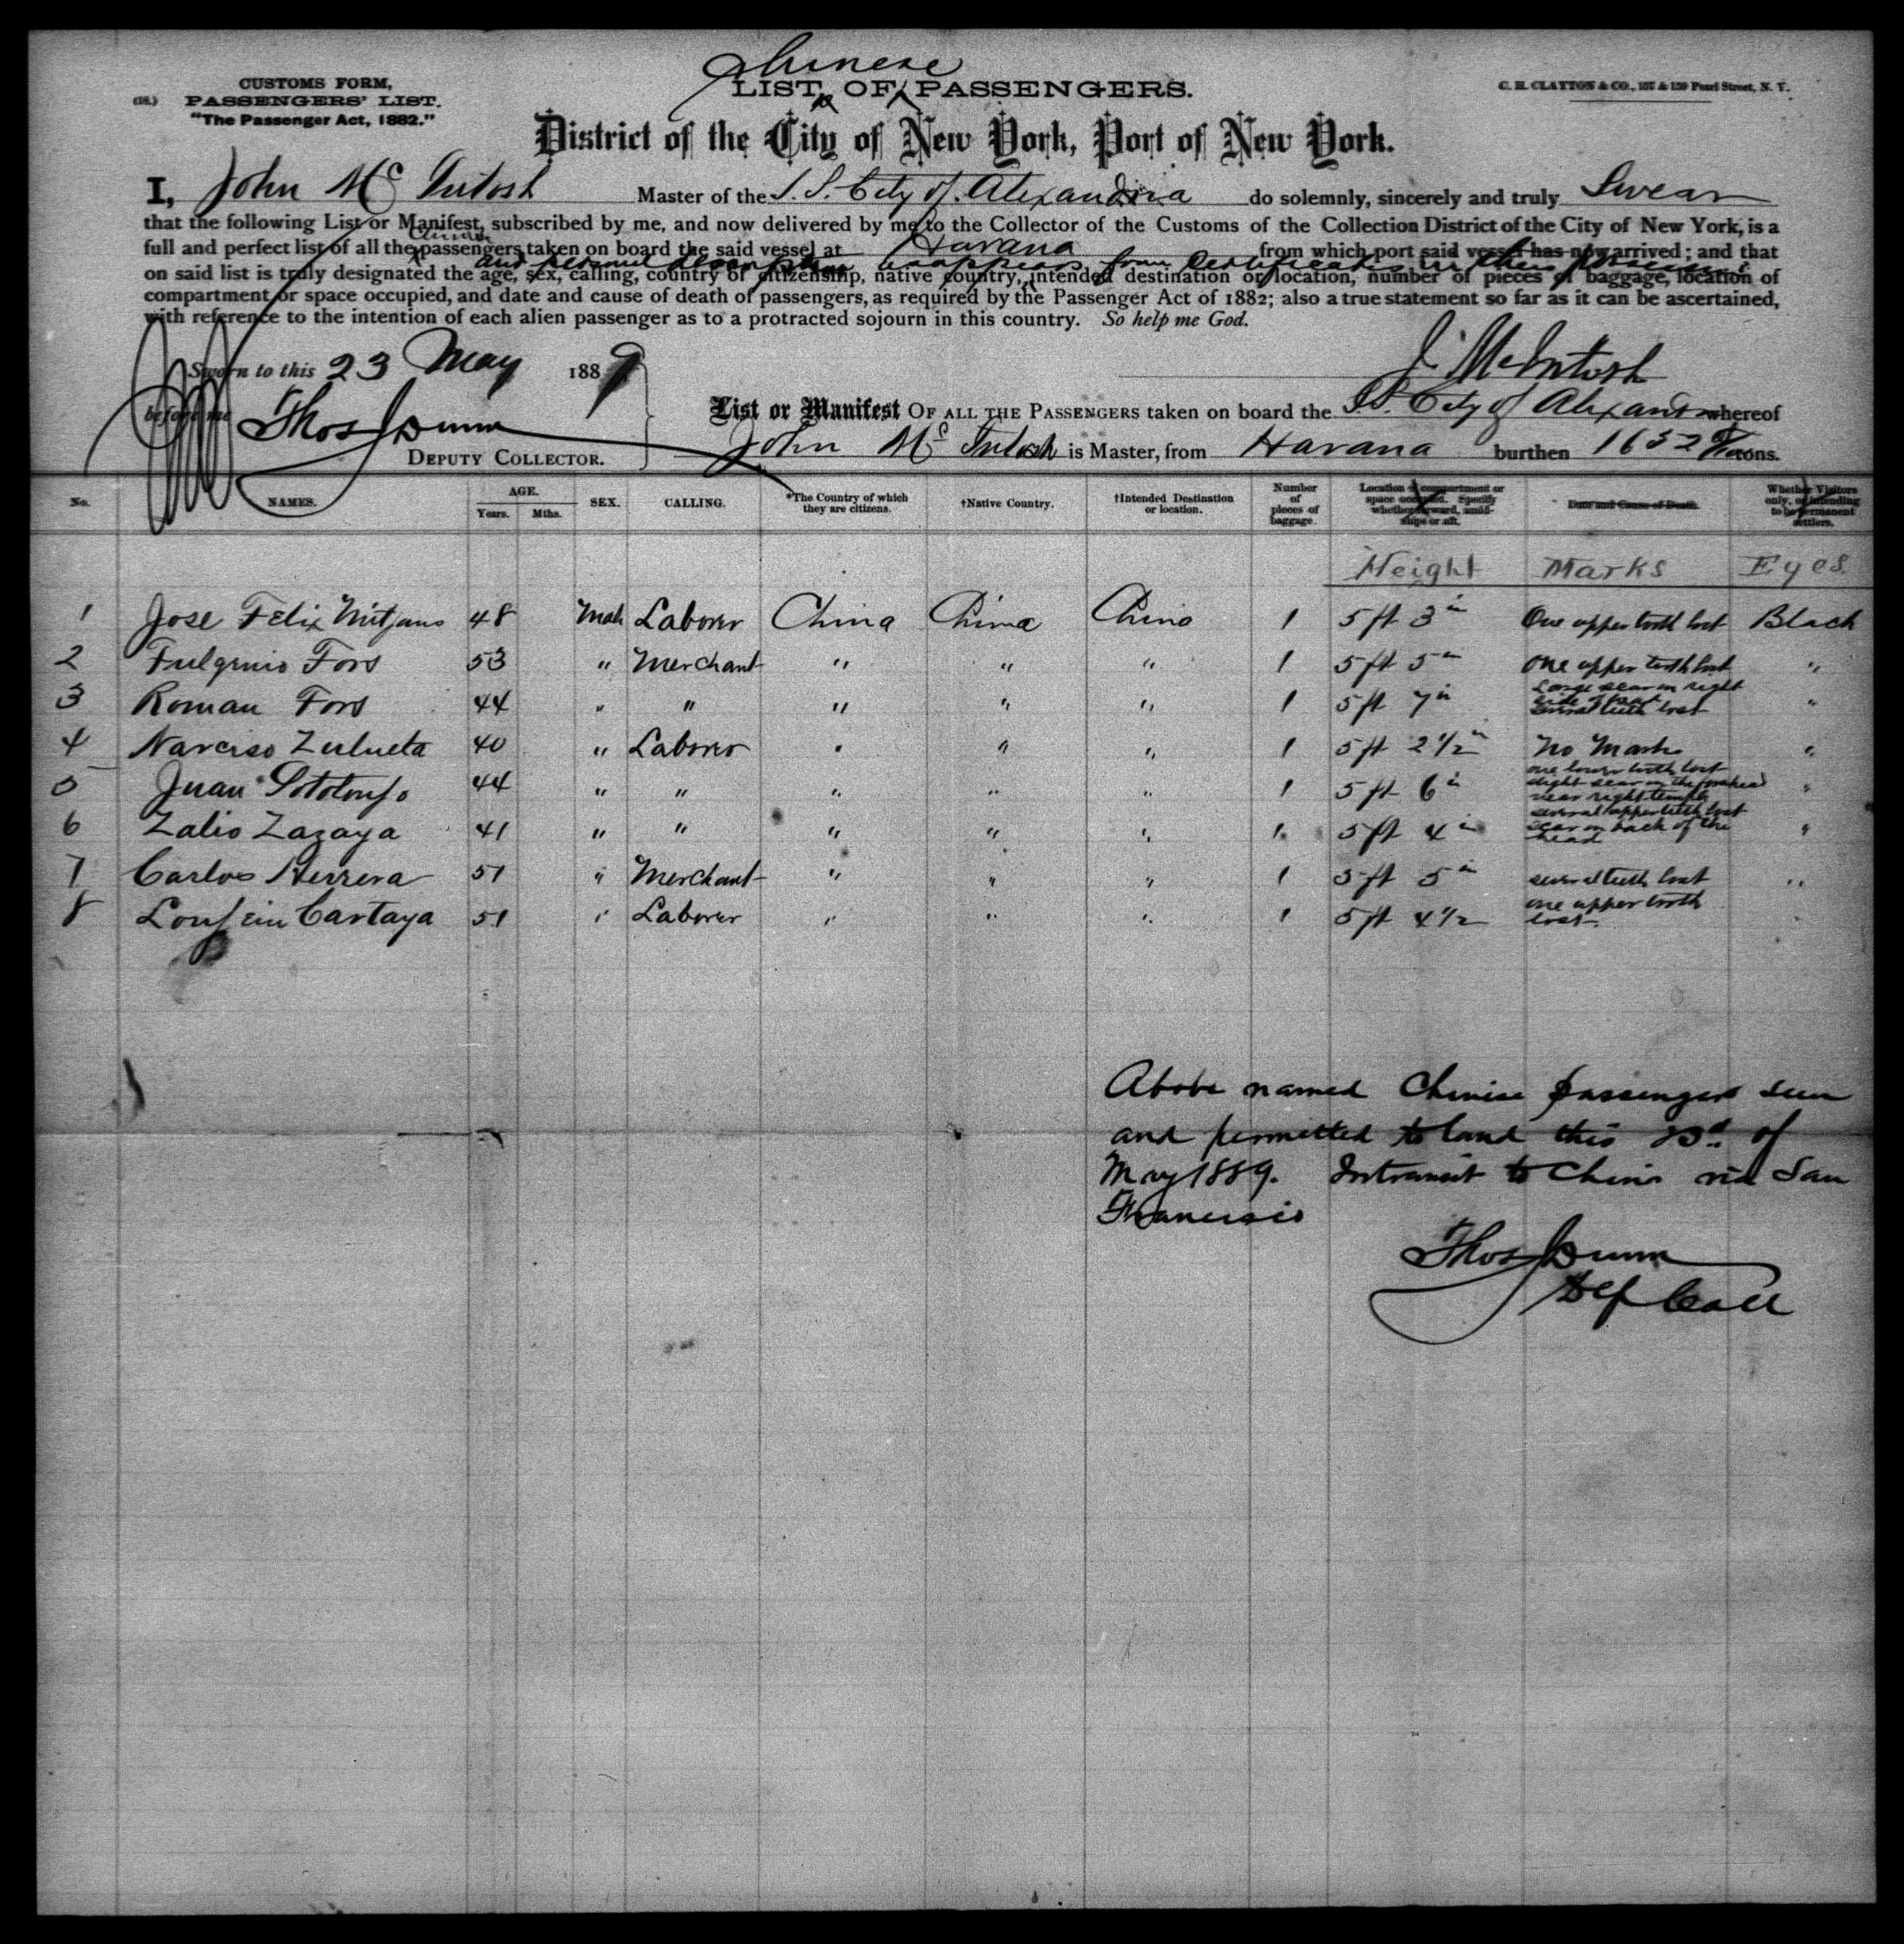 Chinese
CUSTOMS FORM,
(18.) PASSENGERS' LIST.
"The Passenger Act, 1882."
LIST OF PASSENGERS.
C. H. CLAYTON & CO., 157 & 159 Pearl Street, N. Y.
District of the City of New York, Port of New York.
I, John McIntosh Master of the S.S. City of Alexandria do solemnly, sincerely and truly Swear
that the following List or Manifest, subscribed by me, and now delivered by me to the Collector of the Customs of the Collection District of the City of New York, is a
Chinese
full and perfect list of all the passengers taken on board the said vessel at Havana from which port said vessel has now arrived; and that
and personal description as appears from Certificates in their possession
on said list is truly designated the age, sex, calling, country of citizenship, native country, intended destination or location, number of pieces of baggage, location of
compartment or space occupied, and date and cause of death of passengers, as required by the Passenger Act of 1882; also a true statement so far as it can be ascertained,
with reference to the intention of each alien passenger as to a protracted sojourn in this country. So help me God.
Sworn to this 23 May 1889
J. McIntosh
before me Thos J Dunn
DEPUTY COLLECTOR.
List or Manifest OF ALL THE PASSENGERS taken on board the S.S. City of Alexand whereof
John McIntosh is Master, from Havana burthen 1652 tons.
No. NAMES. AGE. Years. Mths. SEX. CALLING. *The Country of which they are citizens. †Native Country. †Intended Destination or location. Number of pieces of baggage. Location of compartment or space occupied. Specify whether forward, amidships or aft. Date and Cause of Death. Whether Visitors only, or intending to be permanent settlers.
Height Marks Eyes
1 Jose Felix Mitjans 48 Male Laborer China China China 1 5 ft 3 in One upper tooth lost Black
2 Fulgenio Fors 53 " Merchant " " " 1 5 ft 5 in One upper tooth lost "
3 Roman Fors 44 " " " " " 1 5 ft 7 in Large scar on right side of several teeth lost "
4 Narciso Zulueta 40 " Laborer " " " 1 5 ft 2 1/2 in No Marks "
5 Juan Sotolongo 44 " " " " " 1 5 ft 6 in one lower tooth lost slight scar on the forehead near right temple "
6 Zalio Zazaya 41 " " " " " 1 5 ft 4 in several upper teeth lost scar on back of the head "
7 Carlos Herrera 51 " Merchant " " " 1 5 ft 5 in several teeth lost "
8 Cartaya 51 " Laborer " " " 1 5 ft 4 1/2 one upper tooth lost
Above named Chinese passengers seen
and permitted to land this 23d of
May 1889. Intransit to China via San
Francisco
Thos J Dunn
Dep Coll